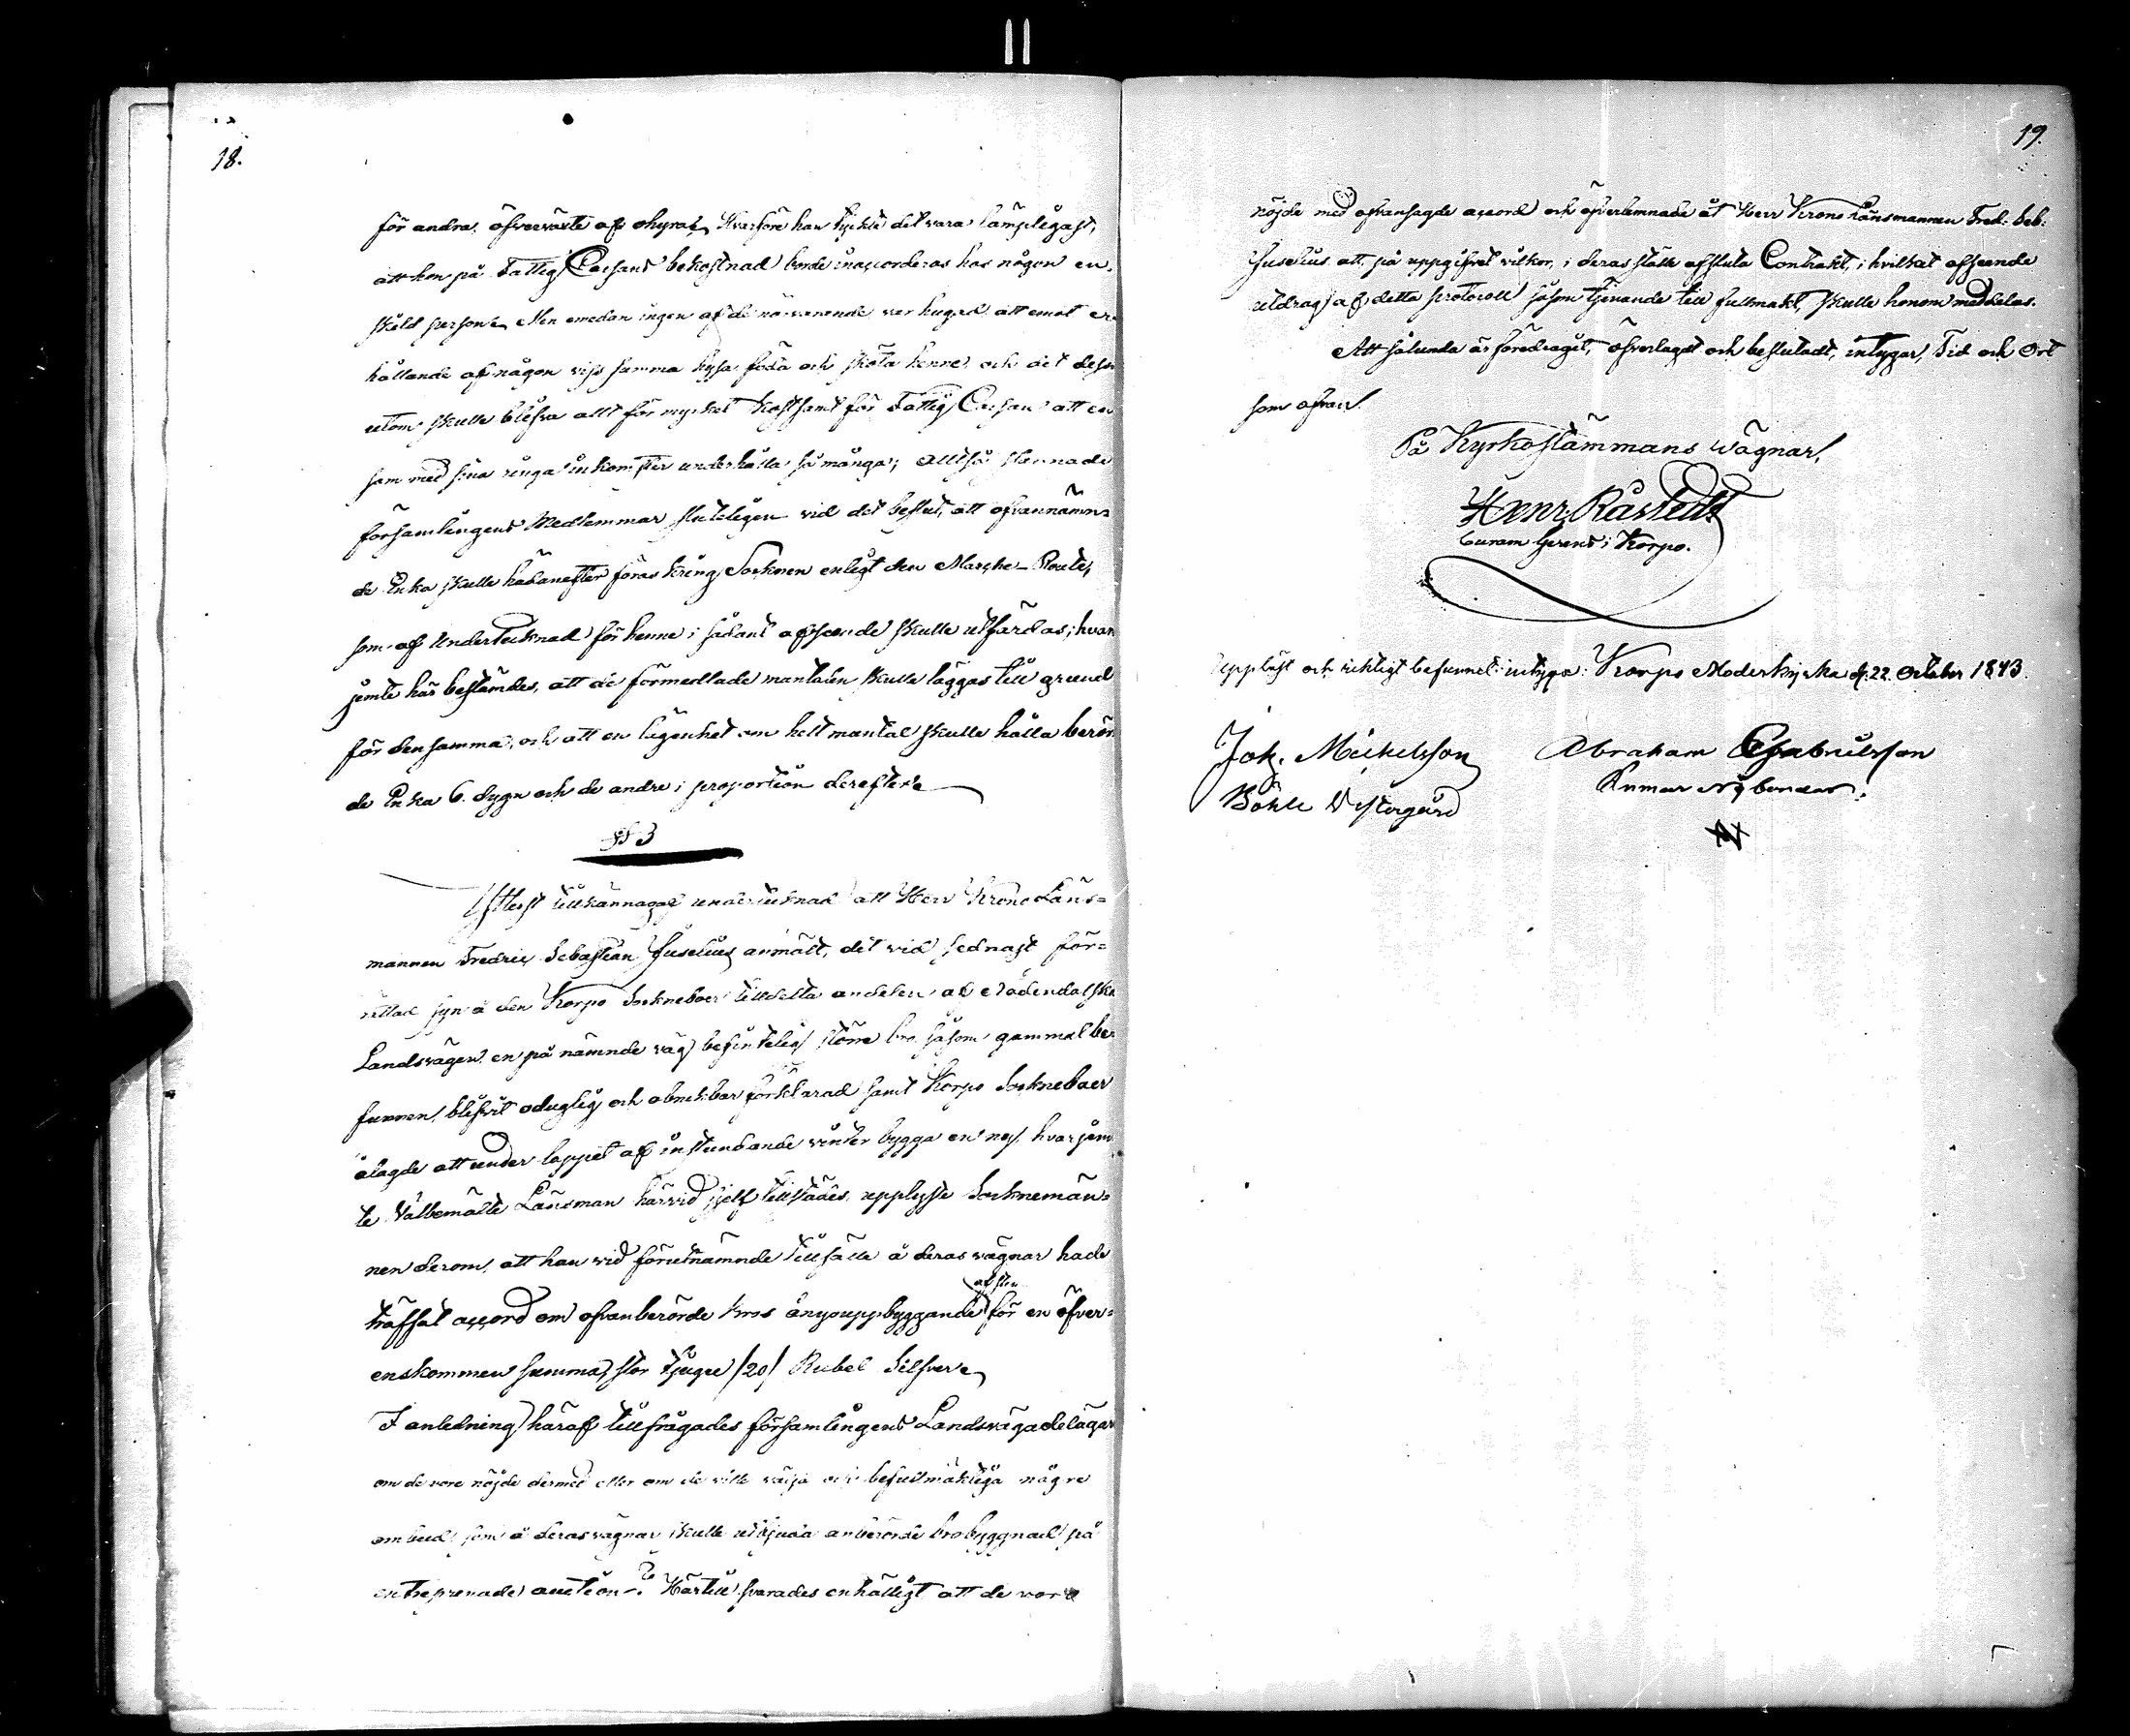 18.
för andra, öfverväxte af ohyra. Hvarföre han tyckte det vara lämpligast,
att hon på Fattig Cassans bekostnad borde inaccorderas hos någon en-
skild person. Men emedan ingen af de närvarande var hugad att emot er-
hållande af någon viss summa hysa, föda och sköta henne, och det dess
utom skulle blifva allt för mycket kostsamt för Fattig Cassan att en
sam med sina ringa inkomster underhålla så många; Alltså stannade
församlingens Medlemmar sluteligen vid det beslut, att ofvannämn-
de Enka skulle hädanefter föras kring Socknen enligt den Marche-Route,
som af Undertecknad för henne i sådant afseende skulle utfärdas; hvar
jemte här bestämdes, att de förmedlade mantalen skulle läggas till grund
för densamma, och att en lägenhet om helt mantal skulle hålla berör-
de Enka 6. dygn och de andre i proportion derefter.
§ 3
Ytterst tillkännagaf undertecknad att Herr KronoLäns-
mannen Fredric Sebastian Juselius anmält, det vid sednast för-
rättad syn å den Korpo Sockneboer tilldelta andelen af Nådendalska
Landsvägen, en på nämnde väg befintelig större bro, såsom gammal be-
funnen, blifvit oduglig och obrukbar förklarad samt Korpo Sockneboer
ålagde att under loppet af instundande vinter bygga en ny, hvarjem
te Välbemälte Länsman härvid sjelf tillstädes upplyste Socknemän-
nen derom, att han vid förutnämnde tillfälle å deras vägnar hade
af sten
träffat accord om ofvanberörde bros ånyouppbyggande för en öfver-
enskommen summa, stor tjugu /20/ Rubel Silfver.
I anledning häraf tillfrågades församlingens Landsvägadelägare
om de vore nöjde dermed eller om de ville välja och befullmäktiga någre
ombud, som å deras vägnar skulle utbjuda anberörde brobyggnad på
entreprenade auction-? Härtill svarades enhälligt att de voro
19.
nöjde med ofvansagde accord och öfverlemnade åt Herr Krono Länsmannen Fred: Seb:
Juselius att, på uppgifvet vilkor, i deras ställe afsluta Contrakt, i hvilket afseende
utdrag af detta protocoll såsom tjenande till fullmakt, skulle honom meddelas.
Att sålunda är föredraget, öfverlagdt och beslutadt, intygar, Tid och Ort
som ofvan.
På Kyrkostämmans vägnar,
Henr Råstedt
Curam Gerens i Korpo.
Uppläst och riktigt befunnet: intyga: Korpo Moderkyrka d. 22. October 1843.
Joh. Michelsson Abraham Gabrielsson
Böhle Vestergård Rumar Nybondas